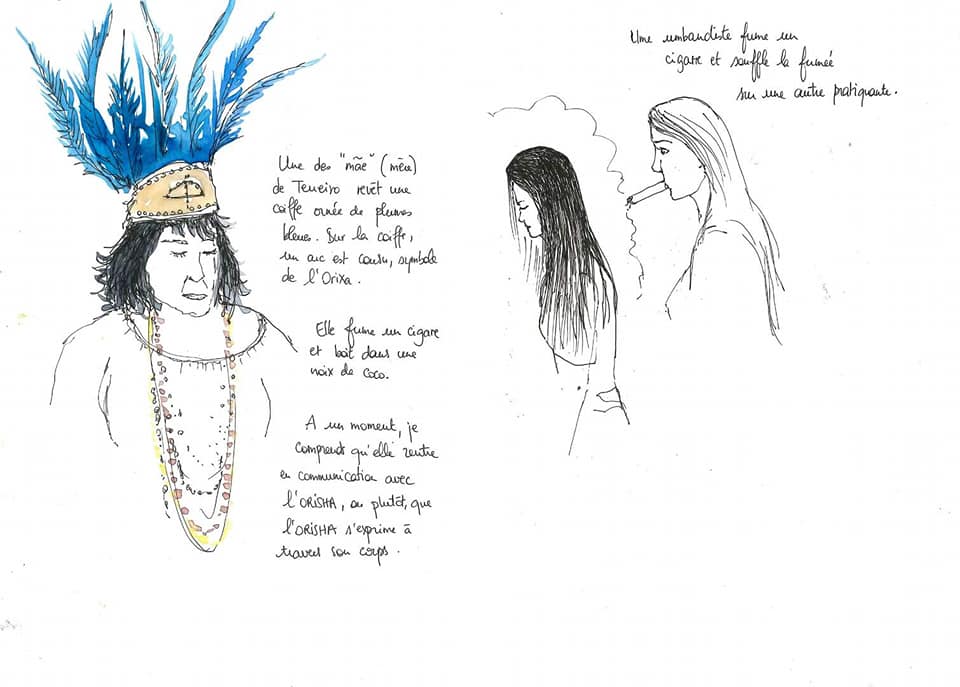 Une des "mãe" (mère)
de Terreiro revêt une
coiffe ornée de plumes
bleues. Sur la coiffe,
un arc est cousu, symbole
de l'Orixa.
Elle fume un cigare
et boit dans une
noix de coco.
A un moment, je
comprends qu'elle rentre
en communication avec
l'ORISHA, ou plutôt, que
l'ORISHA s'exprime à
travers son corps.
Une umbandiste fume un
cigare et souffle la fumée
sur une autre pratiquante.